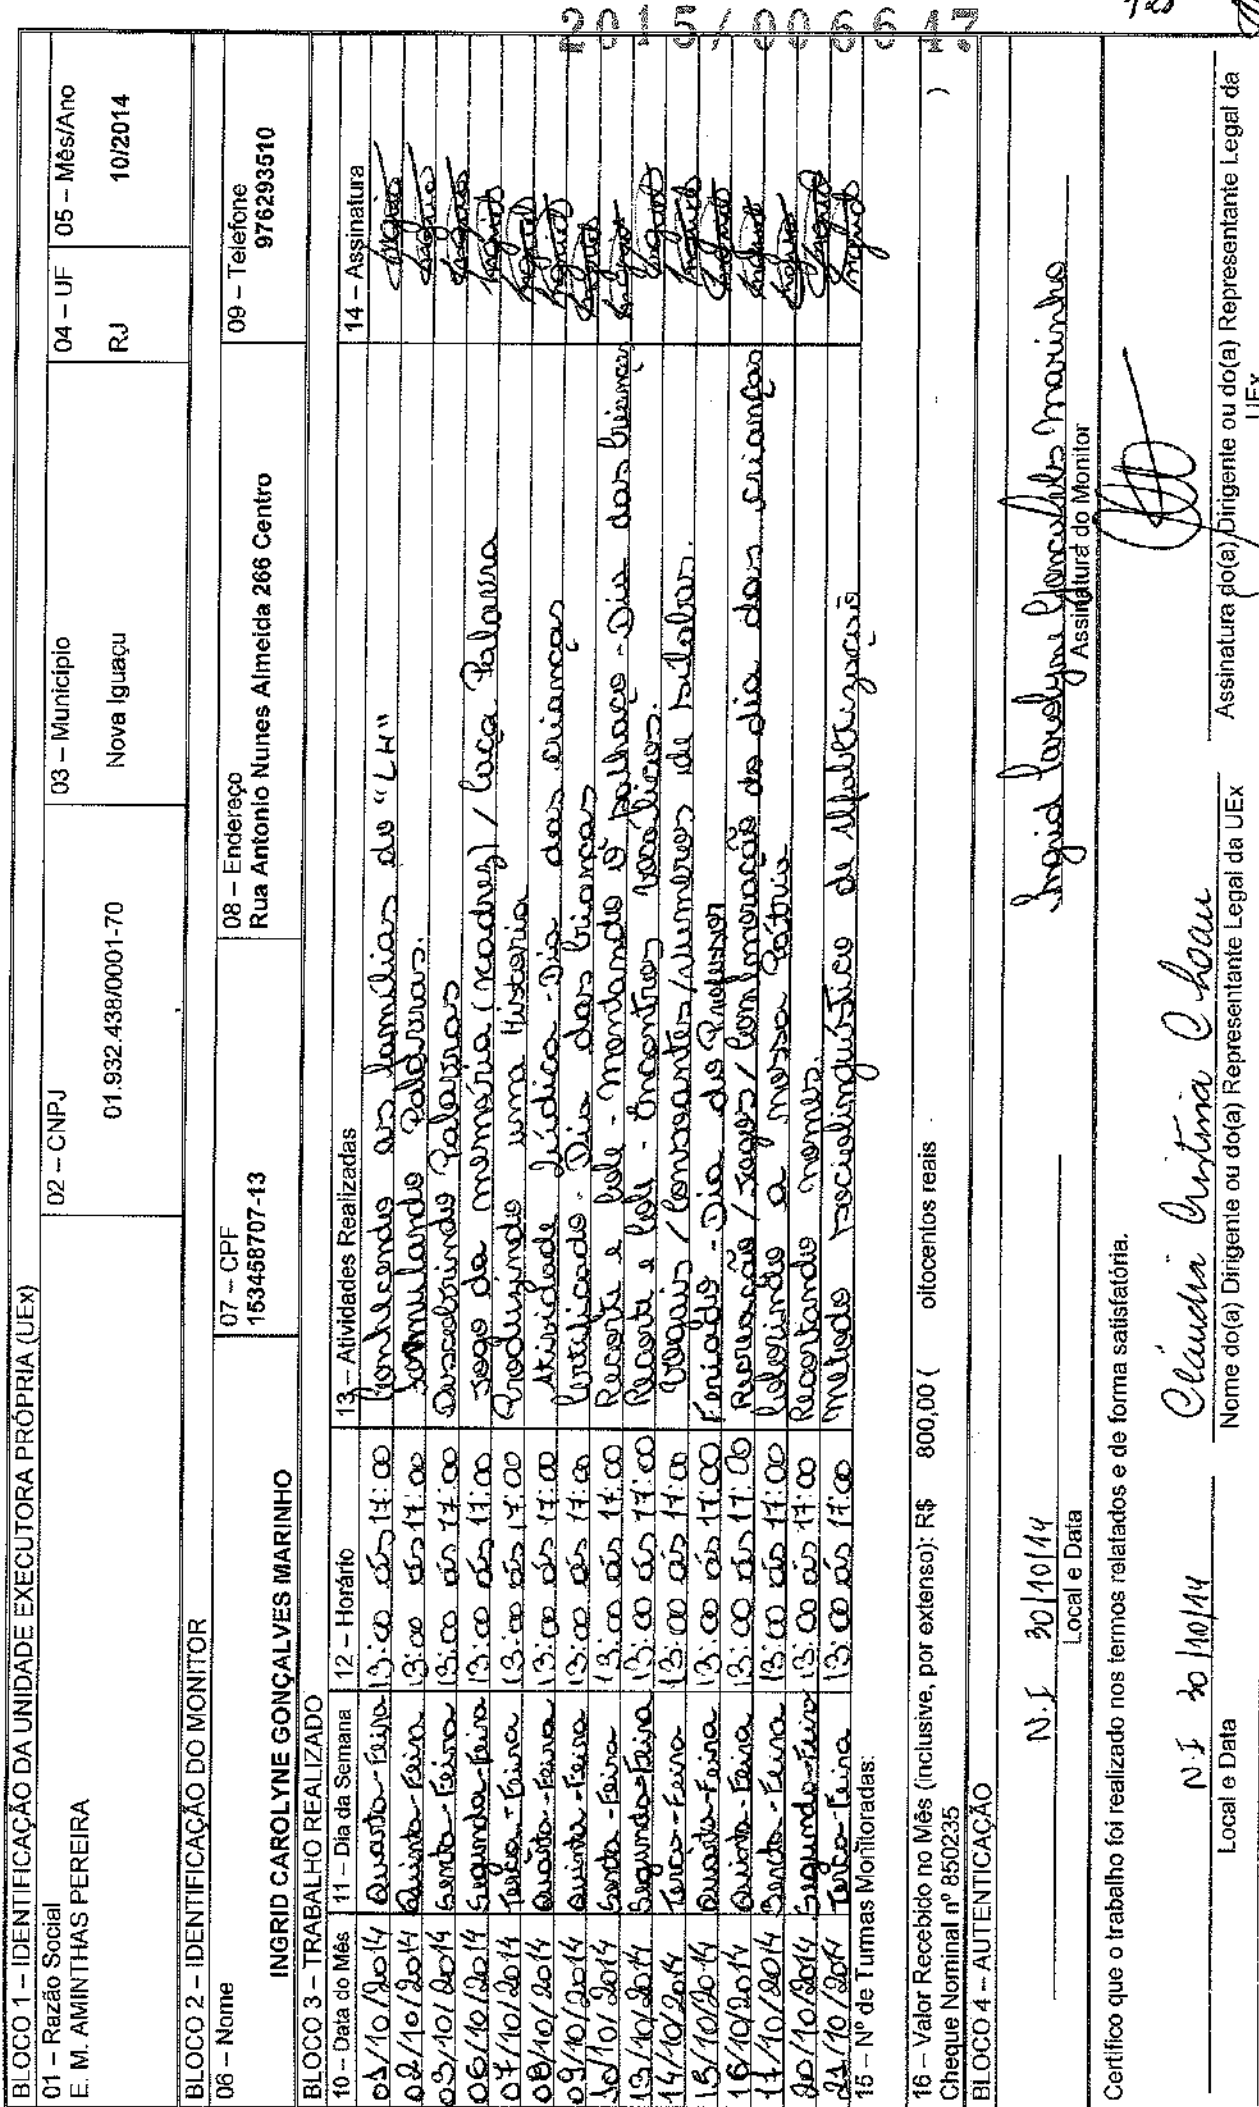 2015/006647
BLOCO 1 – IDENTIFICAÇÃO DA UNIDADE EXECUTORA PRÓPRIA (UEx)
01 – Razão Social
E. M. AMINTHAS PEREIRA
02 – CNPJ
01.932.438/0001-70
03 – Município
Nova Iguaçu
04 – UF
RJ
05 – Mês/Ano
10/2014
BLOCO 2 – IDENTIFICAÇÃO DO MONITOR
06 – Nome
INGRID CAROLYNE GONÇALVES MARINHO
07 – CPF
153458707-13
08 – Endereço
Rua Antonio Nunes Almeida 266 Centro
09 – Telefone
976293510
BLOCO 3 – TRABALHO REALIZADO
10 – Data do Mês 11 – Dia da Semana 12 – Horário 13 – Atividades Realizadas 14 – Assinatura
01/10/2014 Quarta-Feira 13:00 ás 17:00 Conhecendo as famílias do "LH" Ingrid
02/10/2014 Quinta-Feira 13:00 ás 17:00 Formulando Palavras. Ingrid
03/10/2014 Sexta-Feira 13:00 ás 17:00 Descobrindo Palavras Ingrid
06/10/2014 Segunda-Feira 13:00 ás 17:00 Jogo da memória (xadrez) / Caça Palavra Ingrid
07/10/2014 Terça-Feira 13:00 ás 17:00 Produzindo uma História Ingrid
08/10/2014 Quarta-Feira 13:00 ás 17:00 Atividade Lúdica - Dia das crianças Ingrid
09/10/2014 Quinta-Feira 13:00 ás 17:00 Certificado - Dia das Crianças Ingrid
10/10/2014 Sexta-Feira 13:00 ás 17:00 Recorte e cole - Montando o palhaço - Dia das Crianças Ingrid
13/10/2014 Segunda-Feira 13:00 ás 17:00 Recorte e Cole - Encontros Vocálicos. Ingrid
14/10/2014 Terça-Feira 13:00 ás 17:00 Vogais / Consoantes / Numeros de Silabas. Ingrid
15/10/2014 Quarta-Feira 13:00 ás 17:00 Feriado - Dia do Professor Ingrid
16/10/2014 Quinta-Feira 13:00 ás 17:00 Recreação / Jogos / Comemoração do dia das crianças Ingrid
17/10/2014 Sexta-Feira 13:00 ás 17:00 Colorindo a nossa Pátria Ingrid
20/10/2014 Segunda-Feira 13:00 ás 17:00 Recortando nomes. Ingrid
21/10/2014 Terça-Feira 13:00 ás 17:00 Metodo sociolinguístico de Alfabetização Ingrid
15 – Nº de Turmas Monitoradas:
16 – Valor Recebido no Mês (inclusive, por extenso): R$ 800,00 ( oitocentos reais )
Cheque Nominal nº 850235
BLOCO 4 – AUTENTICAÇÃO
N.I 30/10/14
Local e Data
Ingrid Carolyne Gonçalves Marinho
Assinatura do Monitor
Certifico que o trabalho foi realizado nos termos relatados e de forma satisfatória.
N.I 30/10/14
Local e Data
Cláudia Cristina
Nome do(a) Dirigente ou do(a) Representante Legal da UEx
Assinatura do(a) Dirigente ou do(a) Representante Legal da
UEx